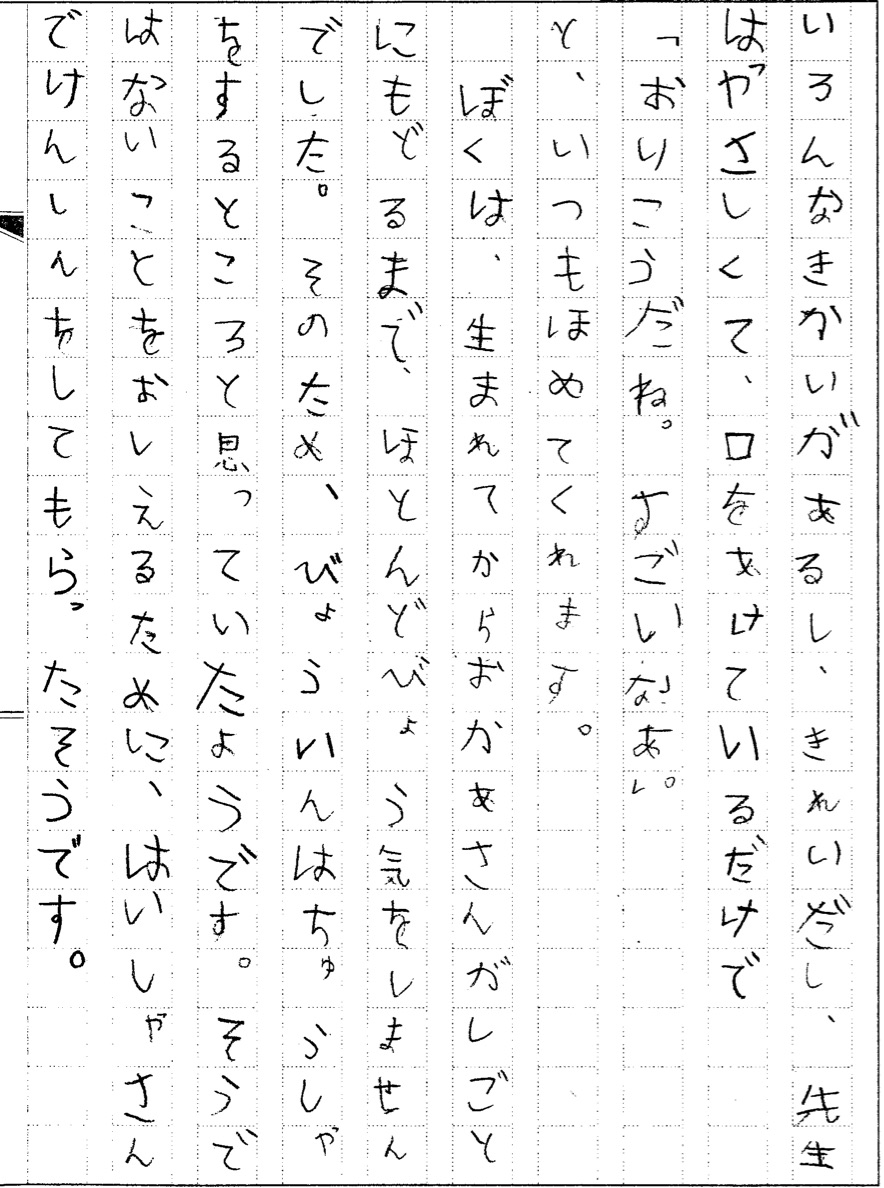 いろんなきかいがあるし、きれいだし、先生
はやさしくて、口をあけているだけで
「おりこうだね。すごいなあ。」
と、いつもほめてくれます。
ぼくは、生まれてからおかあさんがしごと
にもどるまで、ほとんどびょう気をしません
でした。そのため、びょういんはちゅうしゃ
をするところと思っていたようです。そうで
はないことをおしえるために、はいしゃさん
でけんしんをしてもらったそうです。